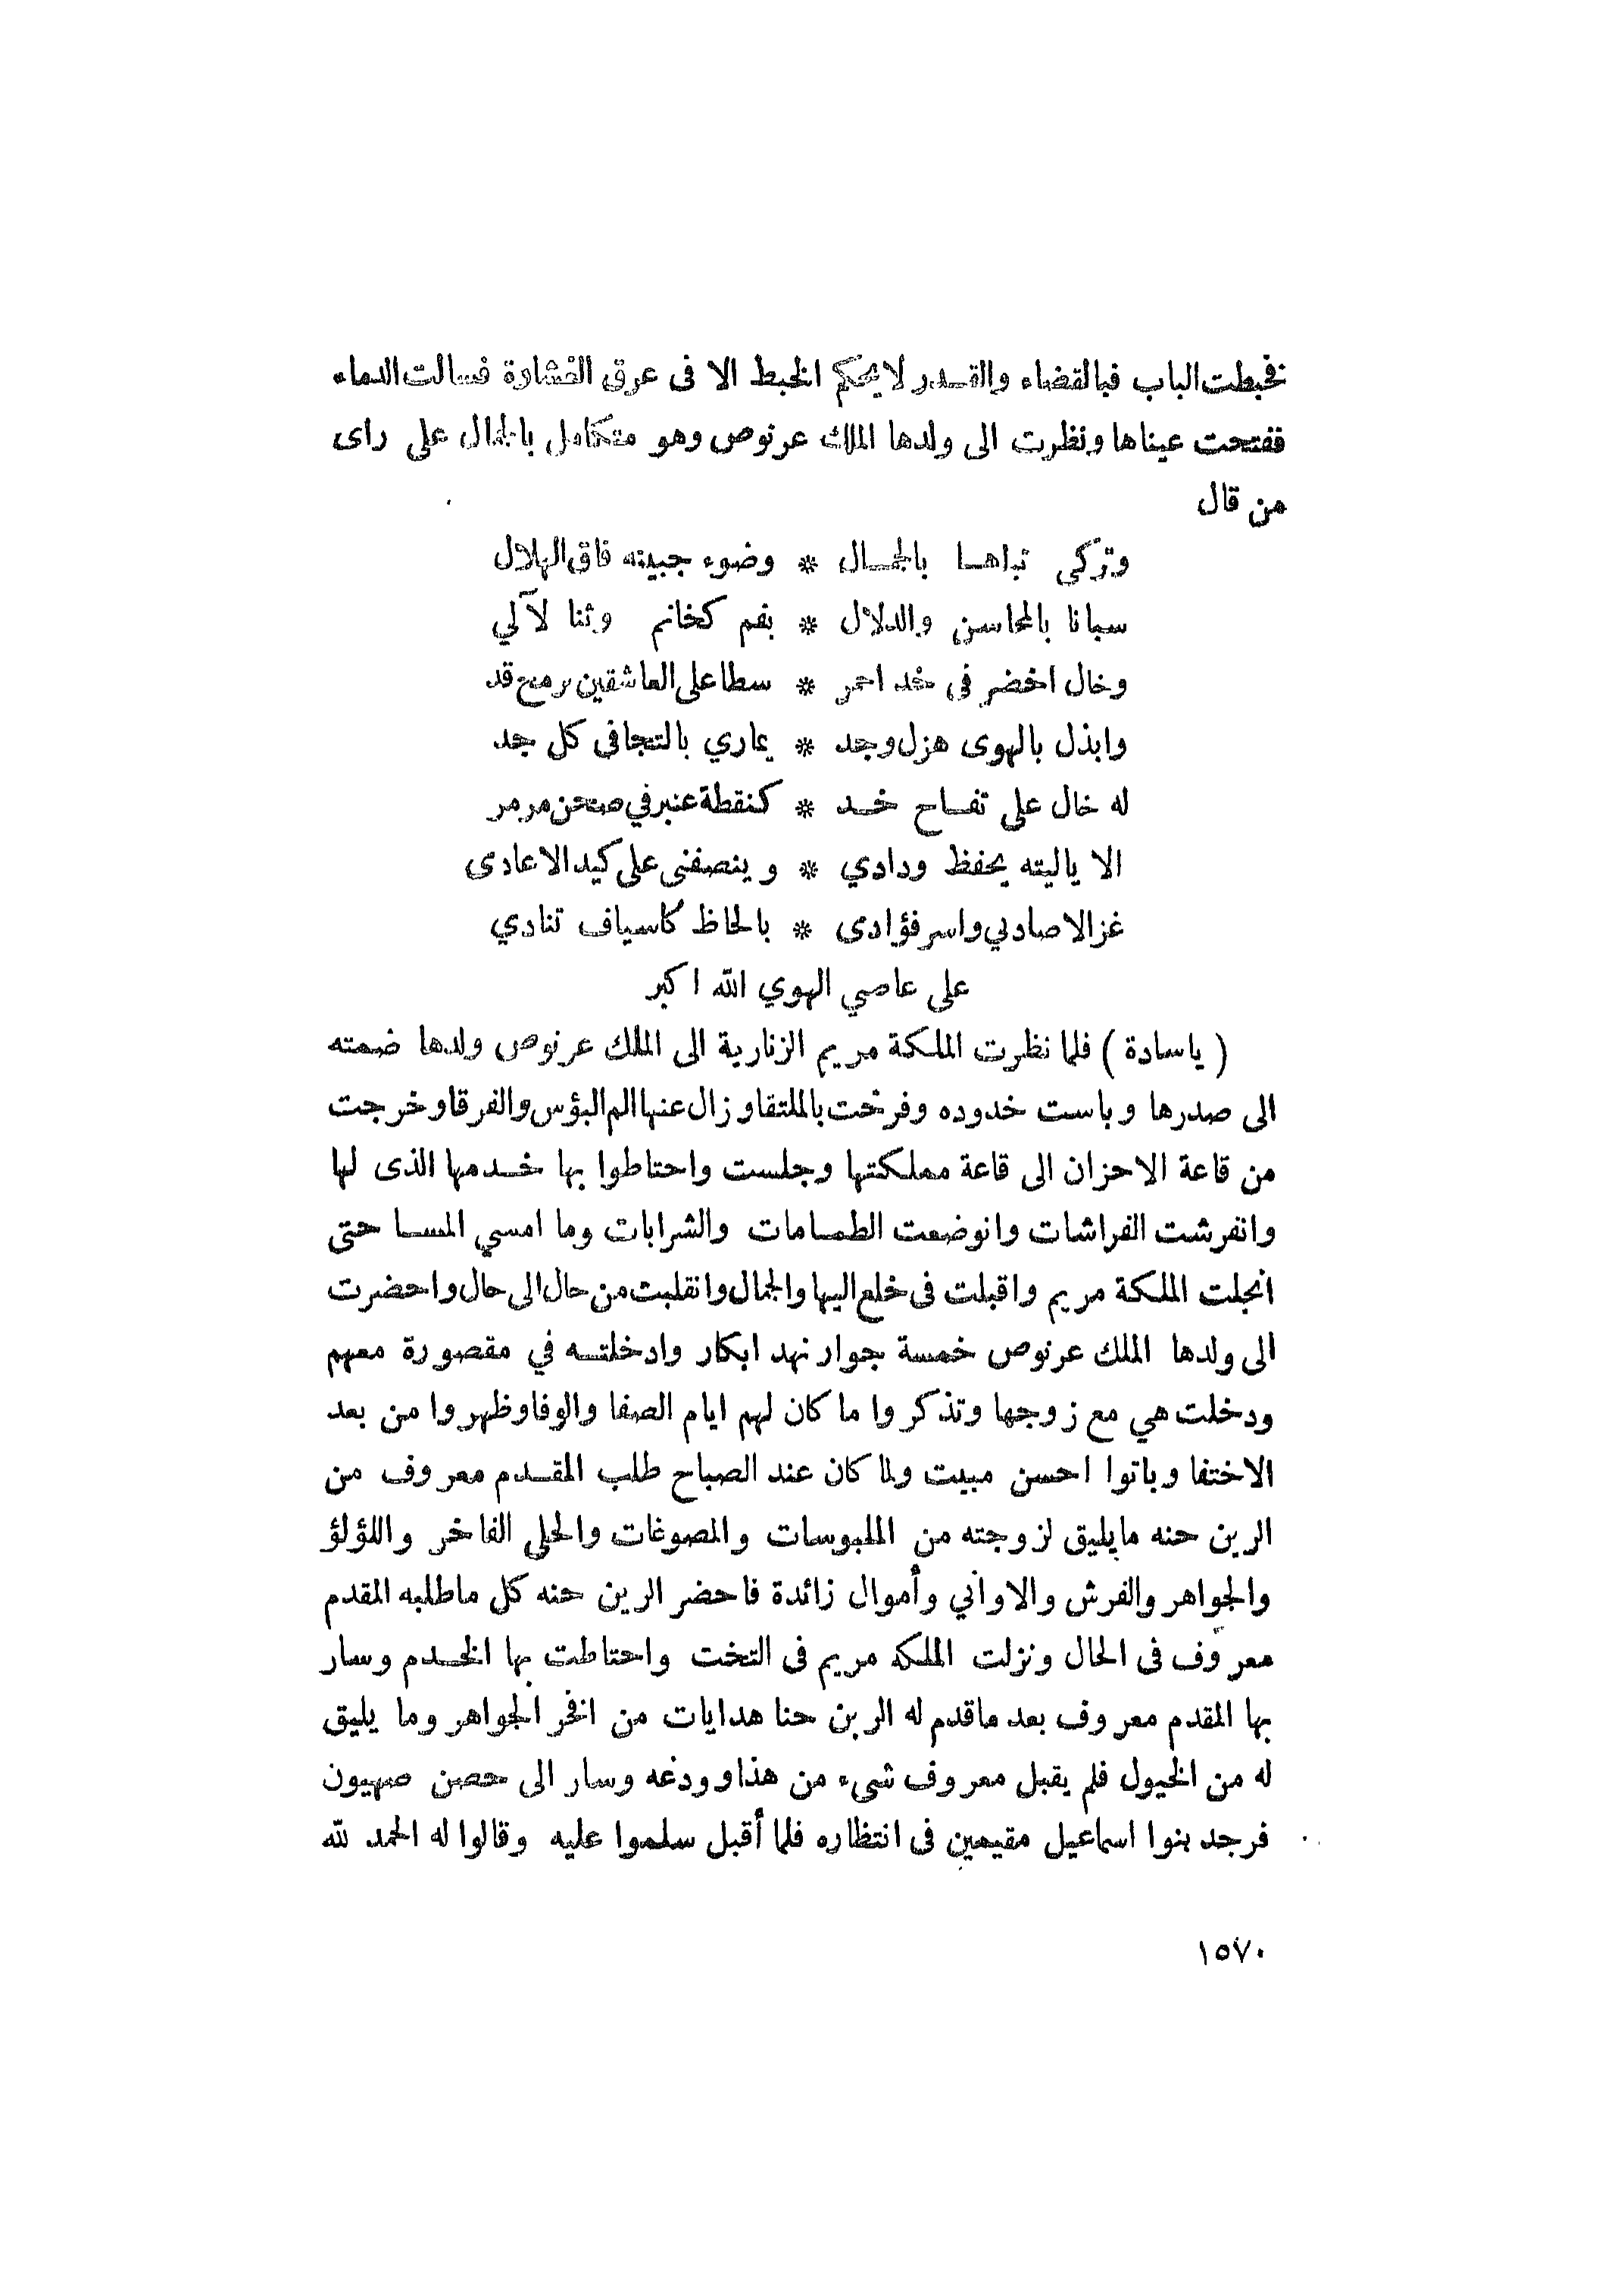 فخبطت الباب فبالقضاء والقدر لا يحكم الخبط الا فى عرق الغشارة فسالت الدماء
ففتحت عيناها ونظرت الى ولدها الملك عرنوص وهو متكامل بالجمال على راى
من قال
وتركى تباها بالجمال * وضوء جبينه فاق الهلال
سبانا بالمحاسن والدلال * بفم كخاتم وثنا لآلي
وخال اخضر فى خد احمر * سطا على العاشقين برمح قد
وابذل بالهوى هزل وجد * يماري بالتجافى كل جد
له خال على تفاح خد * كنقطة عنبر في صحن مرمر
الا ياليته يحفظ ودادي * وينصفنى على كيد الاعادى
غزالا صادلي واسر فؤادى * بالحاظ كاسياف تنادي
على عاصي الهوي الله اكبر
( ياسادة ) فلما نظرت الملكة مريم الزنارية الى الملك عرنوص ولدها ضمته
الى صدرها وباست خدوده وفرحت بالملتقا وزال عنها الم البؤس والفرقا وخرجت
من قاعة الاحزان الى قاعة مملكتها وجلست واحتاطوا بها خدمها الذى لها
وانفرشت الفراشات وانوضعت الطعامات والشرابات وما امسي المسا حتى
انجلت الملكة مريم واقبلت فى خلع البها والجمال وانقلبت من حال الى حال واحضرت
الى ولدها الملك عرنوص خمسة جوار نهد ابكار وادخلته في مقصورة معهم
ودخلت هي مع زوجها وتذكروا ما كان لهم ايام الصفا والوفا وظهروا من بعد
الاختفا وباتوا احسن مبيت ولما كان عند الصباح طلب المقدم معروف من
الرين حنه مايليق لزوجته من الملبوسات والمصوغات والحلي الفاخر واللؤلؤ
والجواهر والفرش والاواني وأموال زائدة فاحضر الرين حنه كل ماطلبه المقدم
معروف فى الحال ونزلت الملكه مريم فى التخت واحتاطت بها الخدم وسار
بها المقدم معروف بعد ماقدم له الرين حنا هدايات من افخر الجواهر وما يليق
له من الخيول فلم يقبل معروف شىء من هذا وودعه وسار الى حصن صهيون
فرجد بنوا اسماعيل مقيمين فى انتظاره فلما أقبل سلموا عليه وقالوا له الحمد لله
١٥٧٠